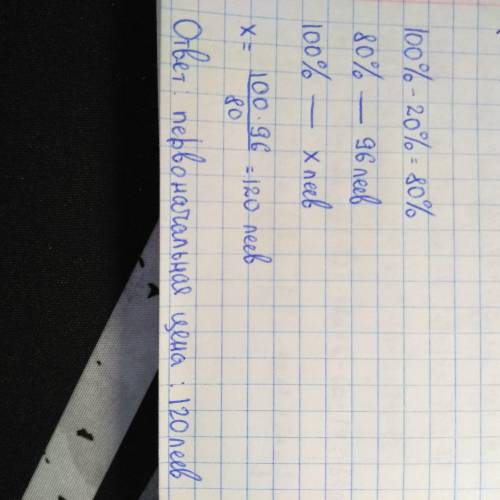 100% - 20% = 80%
80% — 96 леев
100% — х леев
х = 100 · 96 / 80 = 120 леев
Ответ: первоначальная цена: 120 леев